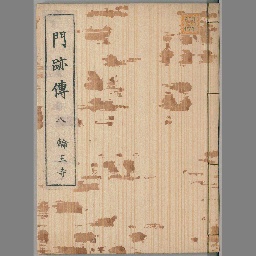 門跡傳
八 輪王寺